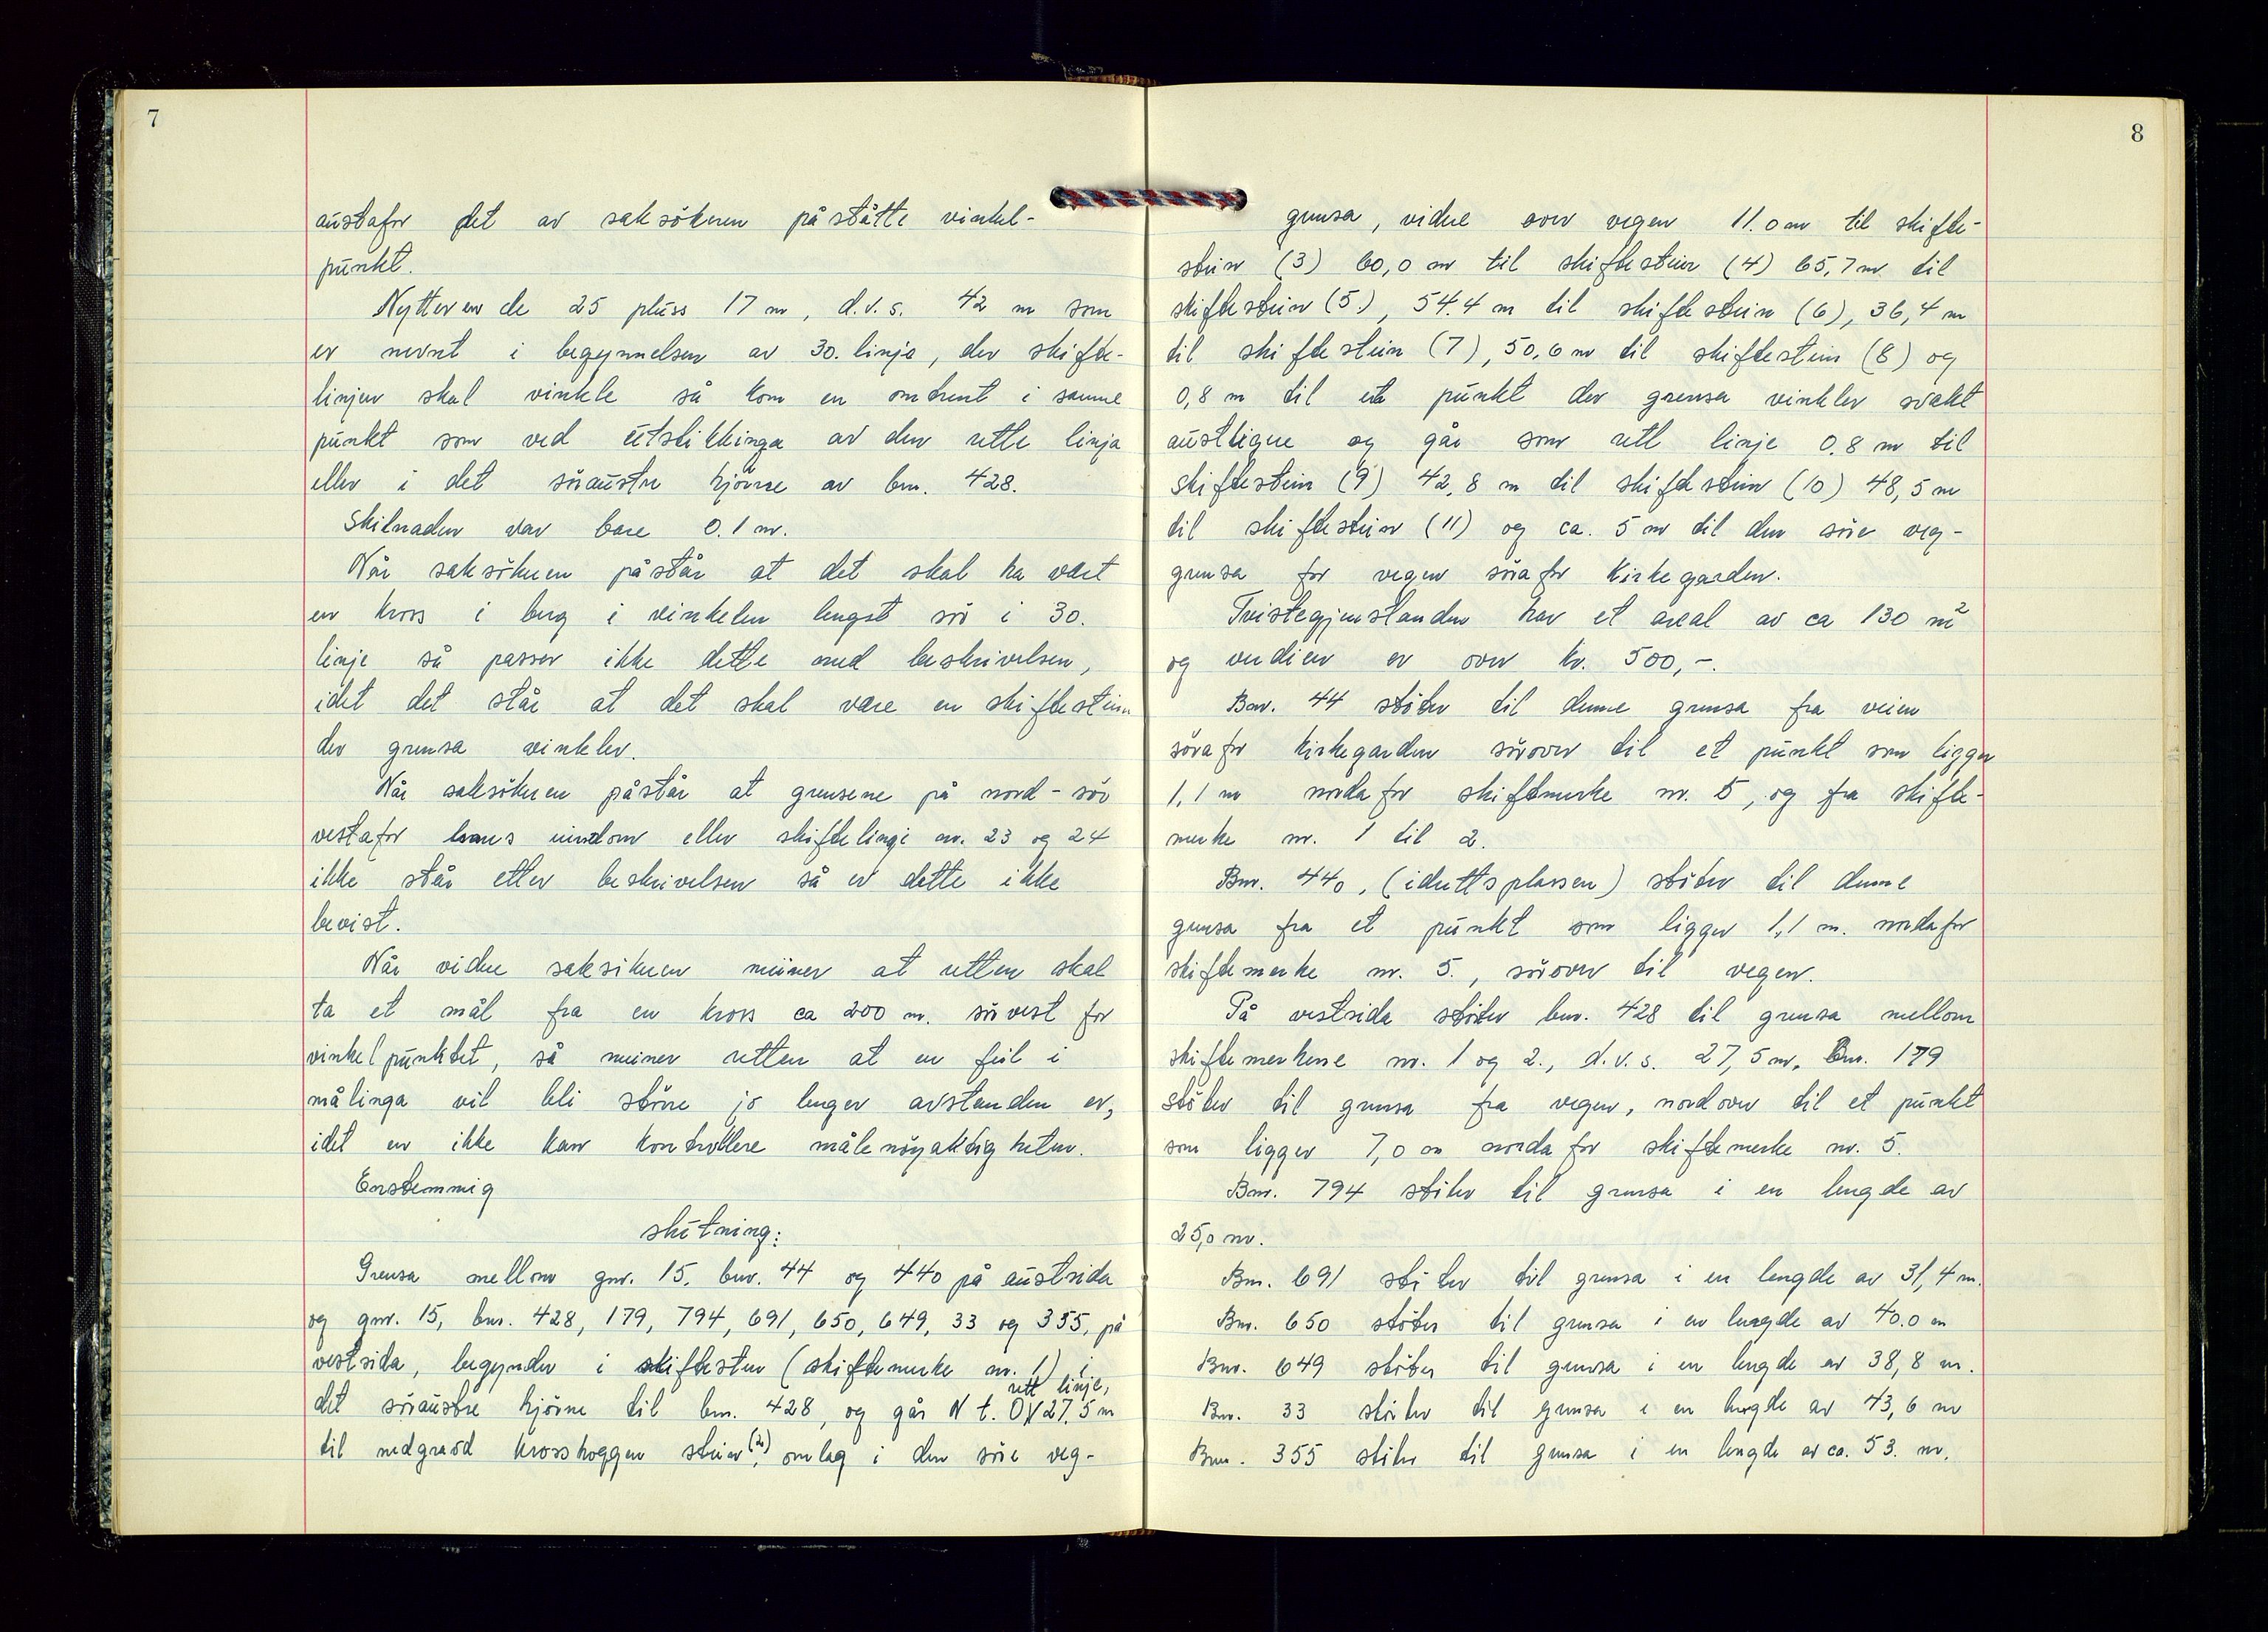 7
austafor det av saksökeren påståtte vinkel-
punkt.
Nytter en de 25 pluss 17 m, d.v.s. 42 m som
er nevnt i begynnelsen av 30. linja, der skifte-
linjen skal vinkle så kom en omtrent i samme
punkt som ved utstikkinga av den rette linja
eller i det söraustre hjörne av bnr. 428.
Skilnaden var bare 0.1 m.
Når saksökeren påstår at det skal ha vært
en kross i berg i vinkelen lengst sör i 30.
linje så passer ikke dette med beskrivelsen,
idet det står at det skal være en skiftestein
der grensa vinkler.
Når saksökeren påstår at grensene på nord-sör
vestafor hans eiendom eller skiftelinje nr. 23 og 24
ikke står etter beskrivelsen så er dette ikke
bevist.
Når videre saksökeren meiner at retten skal
ta et mål fra en kross ca 200 m. sörvest for
vinkelpunktet, så meiner retten at en feil i
målinga vil bli större jo lenger avstanden er,
idet en ikke kan kontrollere målenöyaktigheten.
Enstemmig
slutning:
Grensa mellom gnr. 15, bnr. 44 og 440 på austsida
og gnr. 15, bnr. 428, 179, 794, 691, 650, 649, 33 og 355, på
vestsida, begynder i skiftesten (skiftemerke nr. 1) i
det söraustre hjörne til bnr. 428, og går N t. Ö rett linje, 27.5 m
til nedgravd krosshoggen stein (2), omlag i den söre veg-
8
grensa, videre over vegen 11.0 m til skifte-
stein (3) 60,0 m til skiftestein (4) 65,7 m til
skiftestein (5), 54.4 m til skiftestein (6), 36,4 m
til skiftestein (7), 50,6 m til skiftestein (8) og
0,8 m til et punkt der grensa vinkler svakt
austligere og går som rett linje 0.8 m til
skiftestein (9) 42,8 m til skiftestein (10) 48,5 m
til skiftestein (11) og ca. 5 m til den söre veg-
grensa for vegen sörafor kirkegarden.
Tvistegjenstanden har et areal av ca 130 m²
og verdien er over kr. 500,-.
Bnr. 44 stöter til denne grensa fra veien
sörafor kirkegarden sörover til et punkt som ligger
1,1 m nordafor skiftemerke nr. 5, og fra skifte-
merke nr. 1 til 2.
Bnr. 440, (idrettsplassen) stöter til denne
grensa fra et punkt som ligger 1,1 m. nordafor
skiftemerke nr. 5., sörover til vegen.
På vestsida stöter bnr. 428 til grensa mellom
skiftemerkene nr. 1 og 2., d.v.s. 27,5 m, Bnr. 179
stöter til grensa fra vegen, nordover til et punkt
som ligger 7,0 m nordafor skiftemerke nr. 5.
Bnr. 794 stöter til grensa i en lengde av
25,0 m.
Bnr. 691 stöter til grensa i en lengde av 31,4 m.
Bnr. 650 stöter til grensa i en lengde av 40.0 m
Bnr. 649 stöter til grensa i en lengde av 38,8 m.
Bnr. 33 stöter til grensa i en lengde av 43,6 m
Bnr. 355 stöter til grensa i en lengde av ca. 53. m.